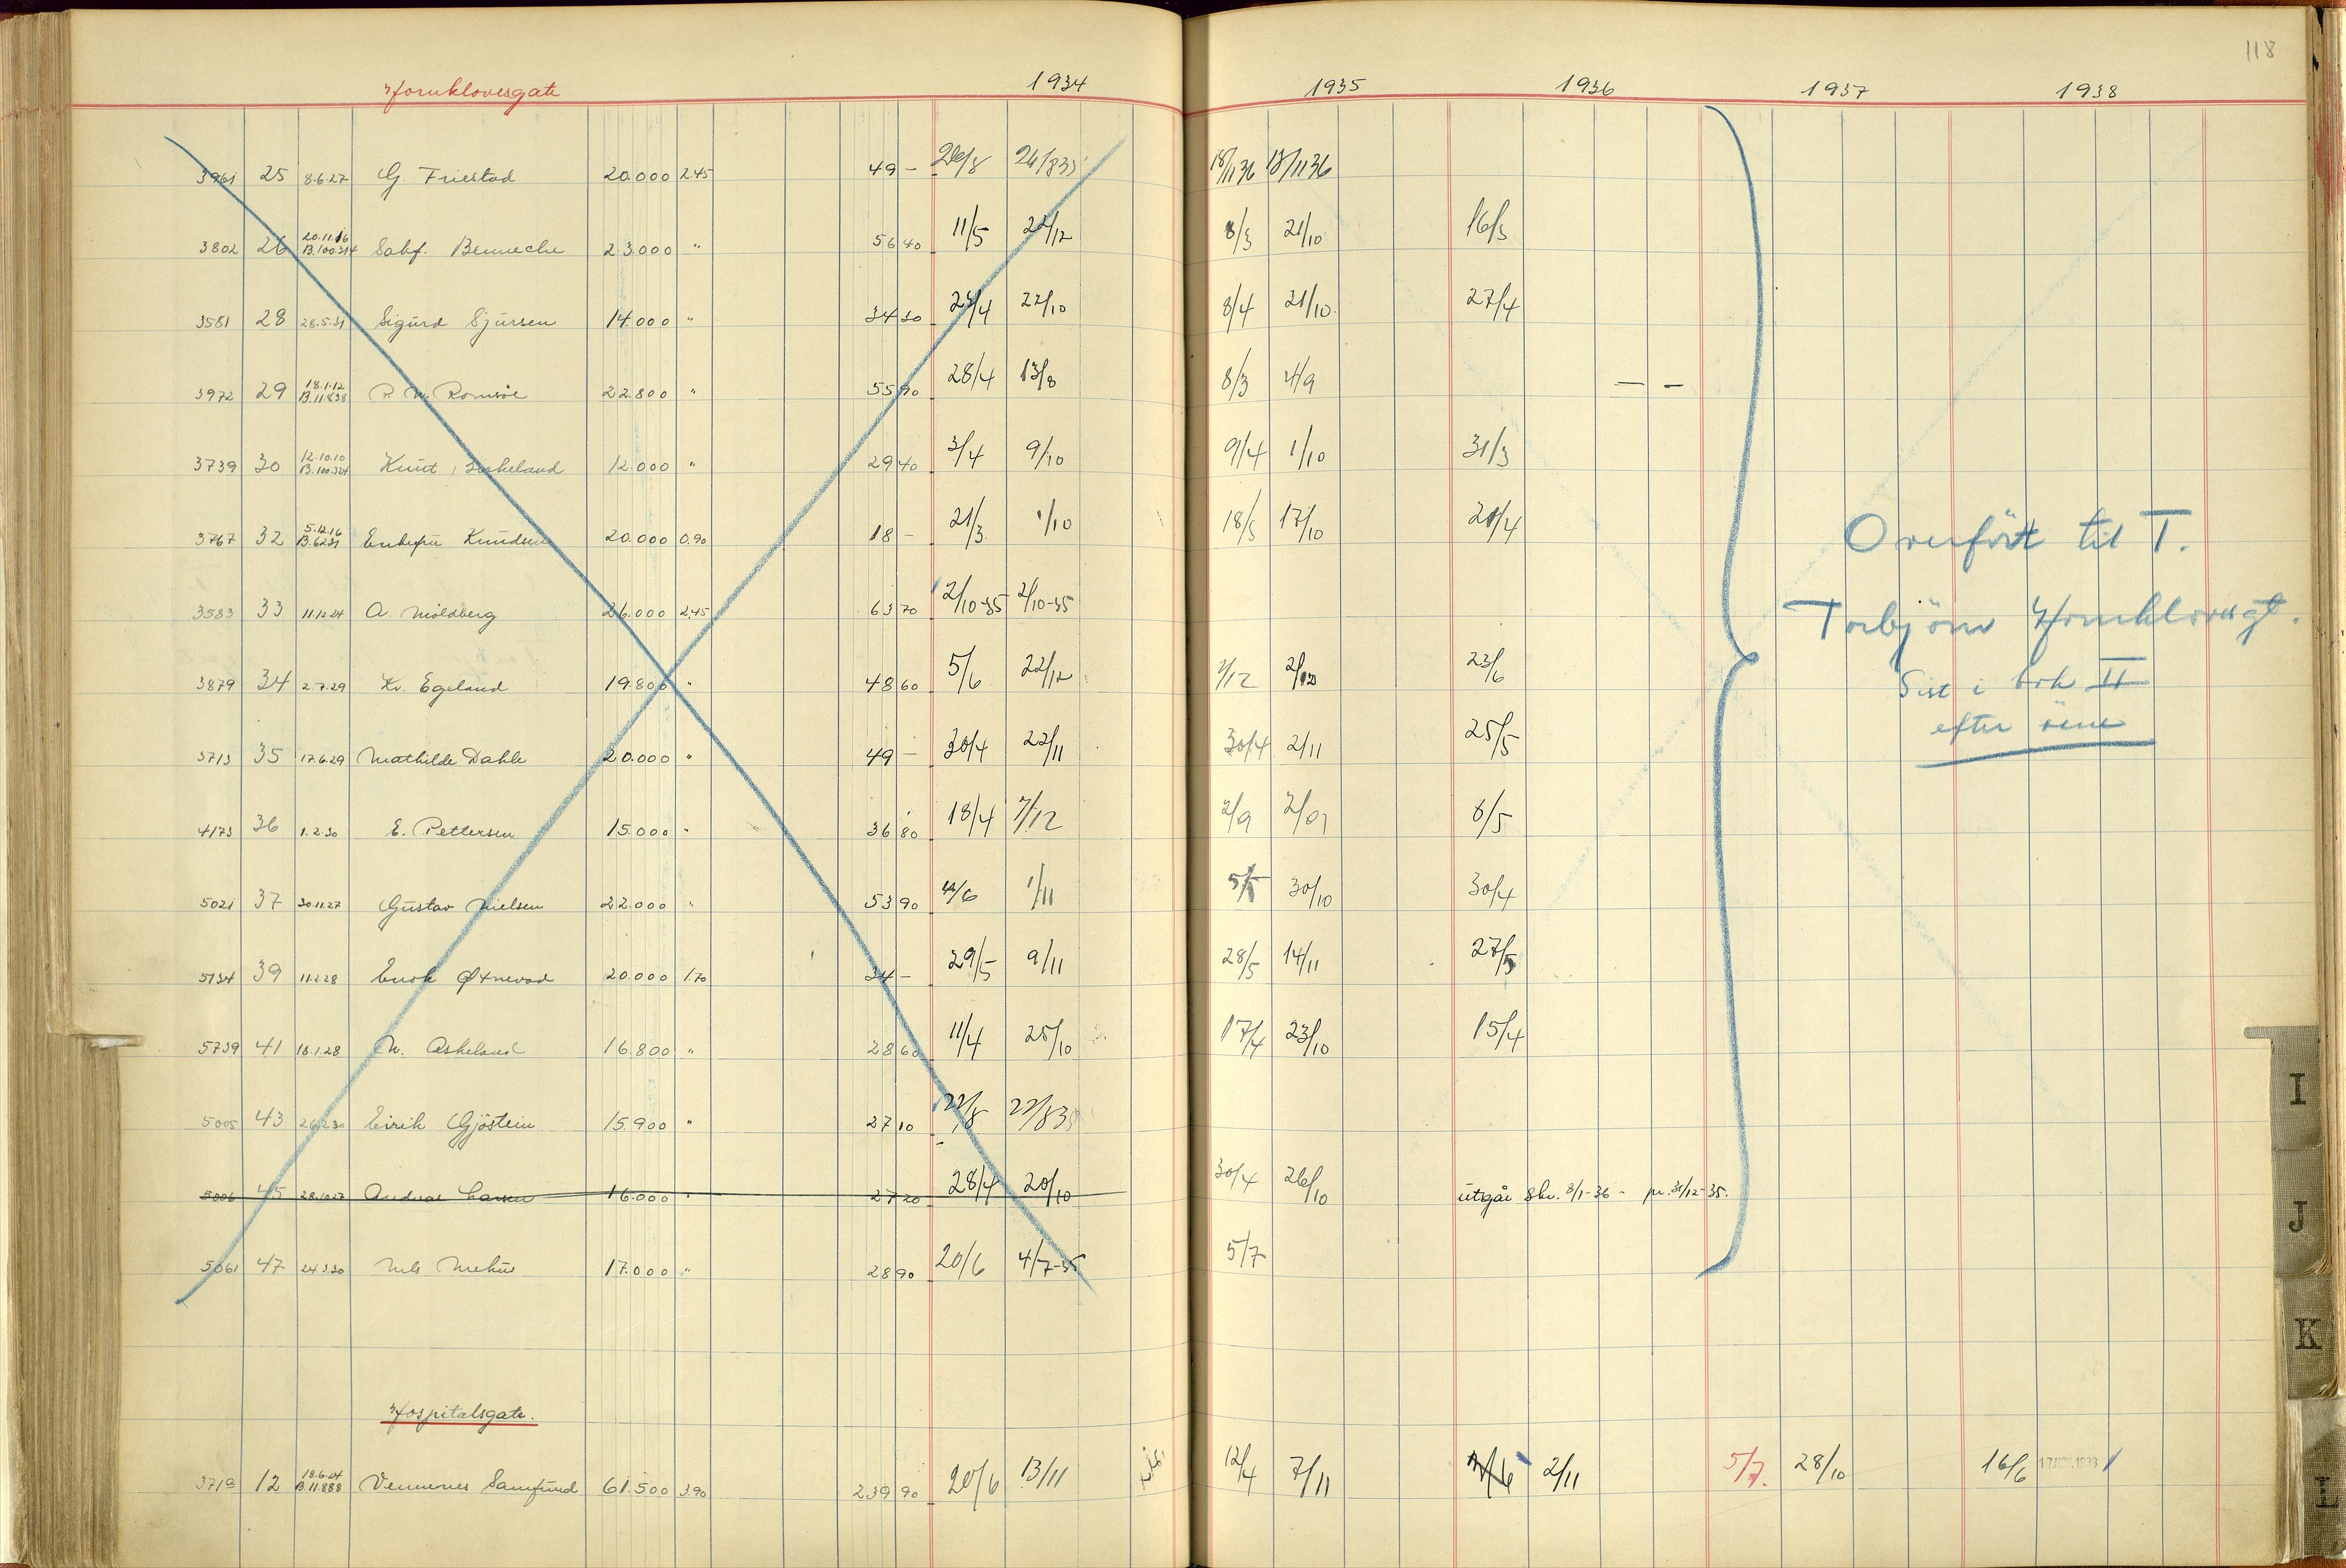 118
Hornklovesgate 1934 1935 1936 1937 1938
3961 25 8.6.27 G. Friestad 20.000 2.45 49 — 26/8 26/8 35 18/11 36 18/11 36
3802 26 20.11.16 B.100.314 Sakf. Benneche 23.000 " 56 40 11/5 22/12 8/3 21/10 16/3
3581 28 28.5.31 Sigurd Sjursen 14.000 " 34 30 23/4 22/10 8/4 21/10 27/4
3972 29 18.1.12 B.11.838 P. N. Romsøe 22.800 " 55 90 28/4 13/8 8/3 4/9 — —
3739 30 12.10.10 B.100.324 Knut Eskeland 12.000 " 29 40 3/4 9/10 9/4 1/10 31/3
3767 32 5.12.16 B.6231 Enkefru Knudsen 20.000 0.90 18 — 21/3 1/10 18/3 17/10 21/4
3583 33 11.12.24 A. Moldberg 26.000 2.45 63 70 2/10-35 2/10-35
3879 34 2.7.29 Kr. Egeland 19.800 " 48 60 5/6 22/12 2/12 23/6
3713 35 17.6.29 Mathilde Dahle 20.000 " 49 — 30/4 22/11 30/4 2/11 25/5
4173 36 1.2.30 E. Pettersen 15.000 " 36 80 18/4 7/12 2/9 8/5
5021 37 30.11.27 Gustav Nielsen 22.000 " 53 90 1/11 5/5 30/10 30/4
5134 39 11.2.28 Enok Øxnevad 20.000 1.70 34 — 29/5 9/11 28/5 14/11 27/5
5739 41 18.1.28 N. Askeland 16.800 " 28 60 11/4 25/10 17/4 23/10 15/4
5005 43 26.2.30 Eirik Gjöstein 15.900 " 27 10 22/8 22/8 35
5006 45 28.10.27 Andreas Larsen 16.000 " 27 20 28/4 20/10 30/4 26/10 utgår skr. 8/1-36 - pr. 31/12-35.
5061 47 24.3.30 Nils Mehus 17.000 " 28 90 20/6 4/7-35 5/7
Overfört til T.
Torbjörn Hornklovesgt.
Sist i bok II
efter
Hospitalsgate.
371a 12 18.6.24 B.11.888 Vennenes Samfund 61.500 3.90 239 90 20/6 13/11 12/4 7/11 2/11 5/7. 28/10 16/6 17 NOV. 1938
I
J
K
L